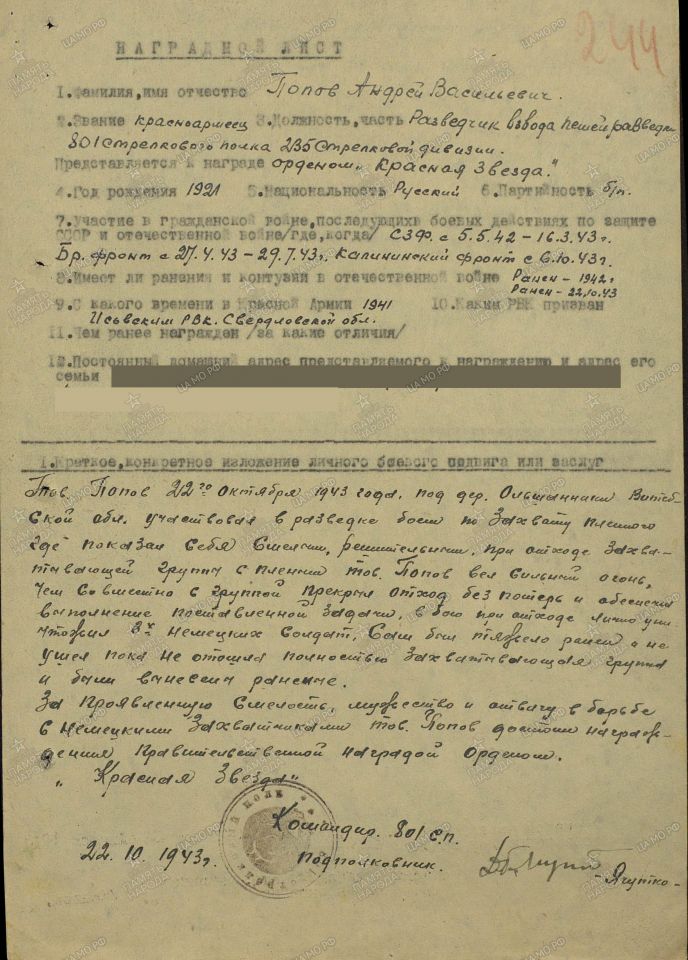 244
НАГРАДНОЙ ЛИСТ
1. Фамилия, имя отчество Попов Андрей Васильевич.
2. Звание красноармеец 3. Должность, часть Разведчик взвода пешей разведки
801 Стрелкового полка 235 Стрелковой дивизии.
Представляется к награде орденом „Красная Звезда."
4. Год рождения 1921 5. Национальность Русский 6. Партийность б/п.
7. Участие в гражданской войне, последующих боевых действиях по защите
СССР и отечественной войне /где, когда/ СЗФ. с 5.5.42 – 16.3.43 г.
Бр. фронт с 27.4.43 – 29.7.43 г. Калининский фронт с 6.10.43 г.
8. Имеет ли ранения и контузии в отечественной войне Ранен – 1942 г
Ранен – 22.10.43
9. С какого времени в Красной Армии 1941 10. Каким РВК призван
Исовским РВК. Свердловской обл.
11. Чем ранее награжден /за какие отличия/
12. Постоянный домашний адрес представляемого к награждению и адрес его
семьи
1. Краткое, конкретное изложение личного боевого подвига или заслуг
Тов. Попов 22го октября 1943 года, под дер. Ольшанники Витеб-
ской обл. участвовал в разведке боем по захвату пленного
где показал себя смелым, решительным, при отходе захва-
тывающей группы с пленным тов. Попов вел сильный огонь,
чем совместно с группой прекрыл отход без потерь и обеспечил
выполнение поставленной задачи, в бою при отходе лично уни-
чтожил 3х немецких солдат. Сам был тяжело ранен и не
ушел пока не отошла полностью захватывающая группа
и были вынесены раненые.
За проявленную смелость, мужество и отвагу в борьбе
с немецкими захватчиками тов. Попов достоин награж-
дения Правительственной наградой Орденом.
„Красная Звезда"
Командир. 801 с.п.
22.10.1943 г. Подполковник.
– Ячутко –